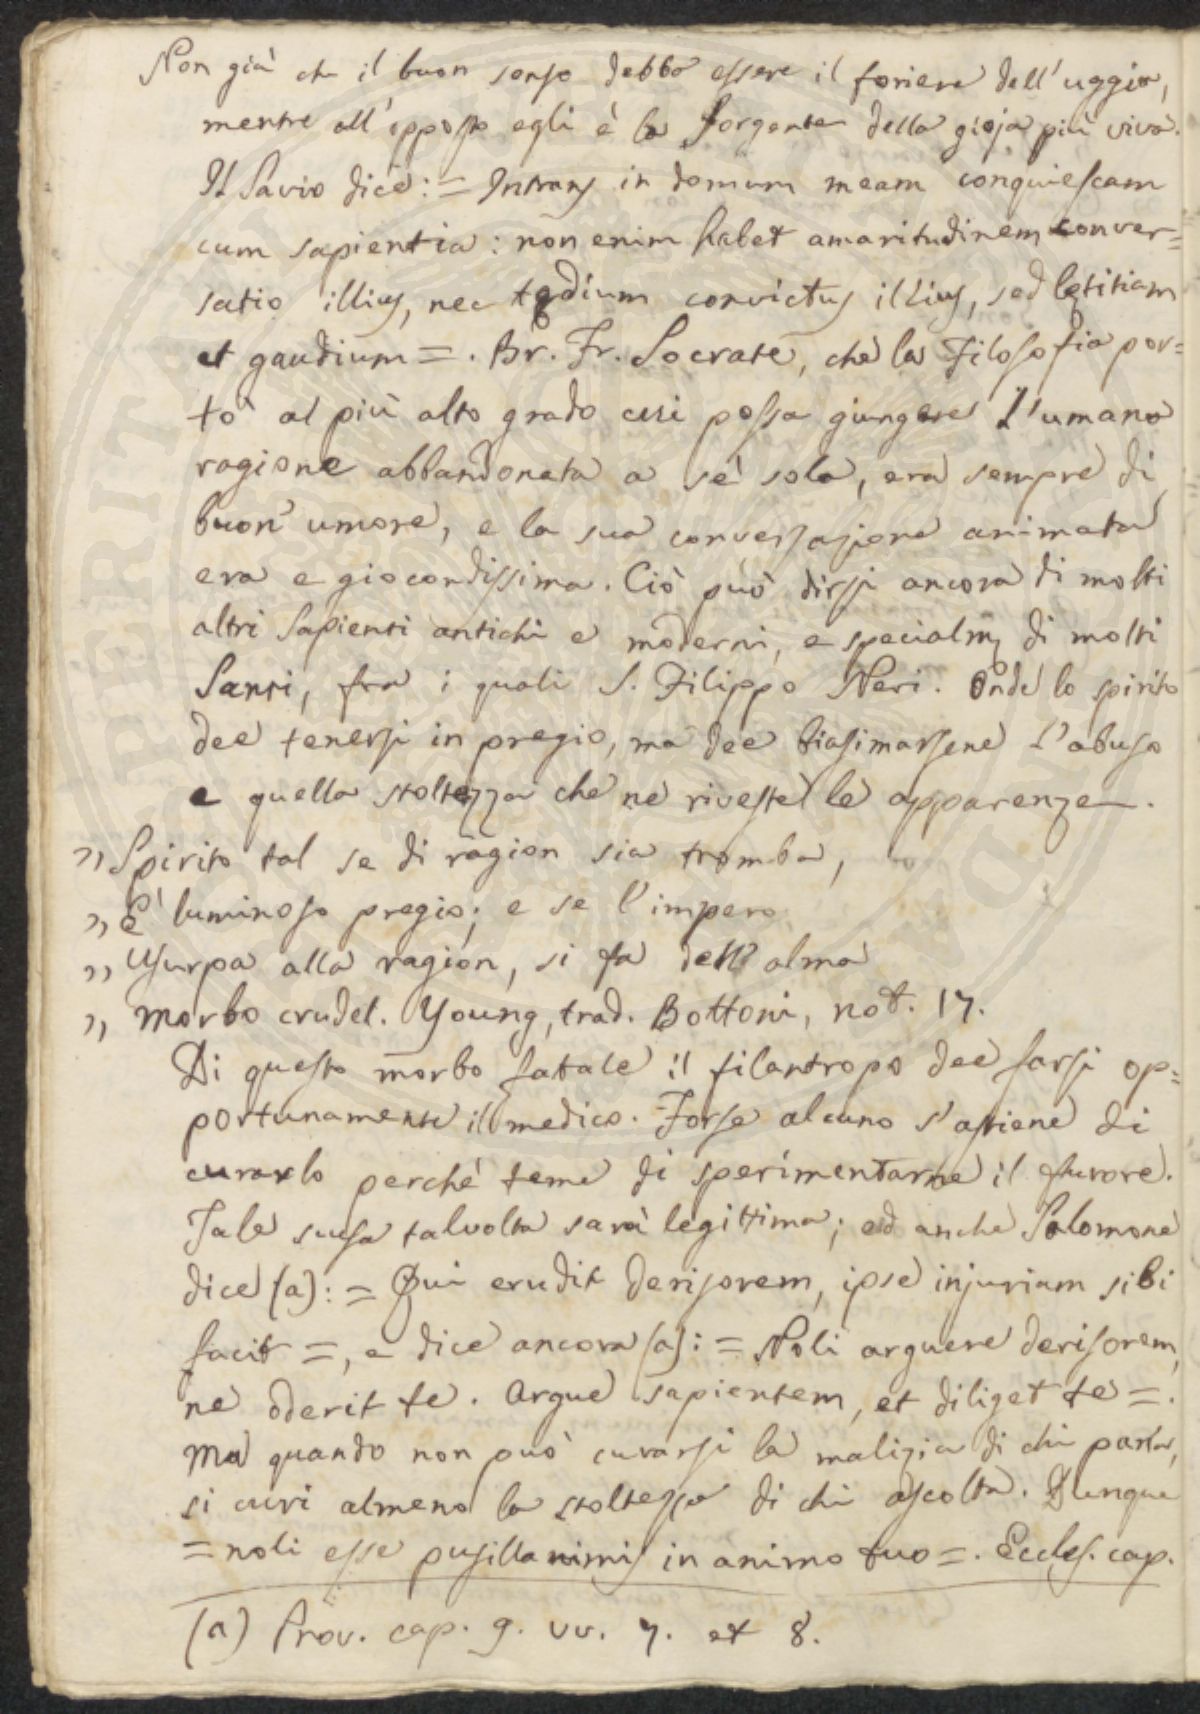 Non già che il buon senso debba essere il foriere dell'uggia,
mentre all'opposto egli è la sorgente della gioja più viva.
Il Savio dice: = Intrans in domum meam conquiescam
cum sapientia: non enim habet amaritudinem conver=
satio illius, nec tędium convictus illius, sed lętitiam
et gaudium =. Br. Fr. Socrate, che la Filosofia por=
tò al più alto grado cui possa giungere l'umana
ragione abbandonata a sè sola, era sempre di
buon umore, e la sua conversazione animata
era e giocondissima. Ciò può dirsi ancora di molti
altri Sapienti antichi e moderni, e specialm. di molti
Santi, fra i quali S. Filippo Neri. Onde lo spirito
dee tenersi in pregio, ma dee biasimarsene l'abuso
e quella stoltezza che ne riveste le apparenze.
" Spirito tal se di ragion sia tromba,
" È luminoso pregio; e se l'impero
" Usurpa alla ragion, si fa dell'alma
" Morbo crudel. Young, trad. Bottoni, not. 17.
Di questo morbo fatale il filantropo dee farsi op=
portunamente il medico. Forse alcuno s'astiene di
curarlo perchè teme di sperimentarne il furore.
Tale scusa talvolta sarà legittima; ed anche Salomone
dice (a): = Qui erudit derisorem, ipse injuriam sibi
facit =, e dice ancora (a): = Noli arguere derisorem,
ne oderit te. Argue sapientem, et diliget te =.
Ma quando non può curarsi la malizia di chi parla,
si curi almeno la stoltezza di chi ascolta. Dunque
= noli esse pusillanimis in animo tuo =. Eccles. cap.
(a) Prov. cap. 9. vv. 7. et 8.